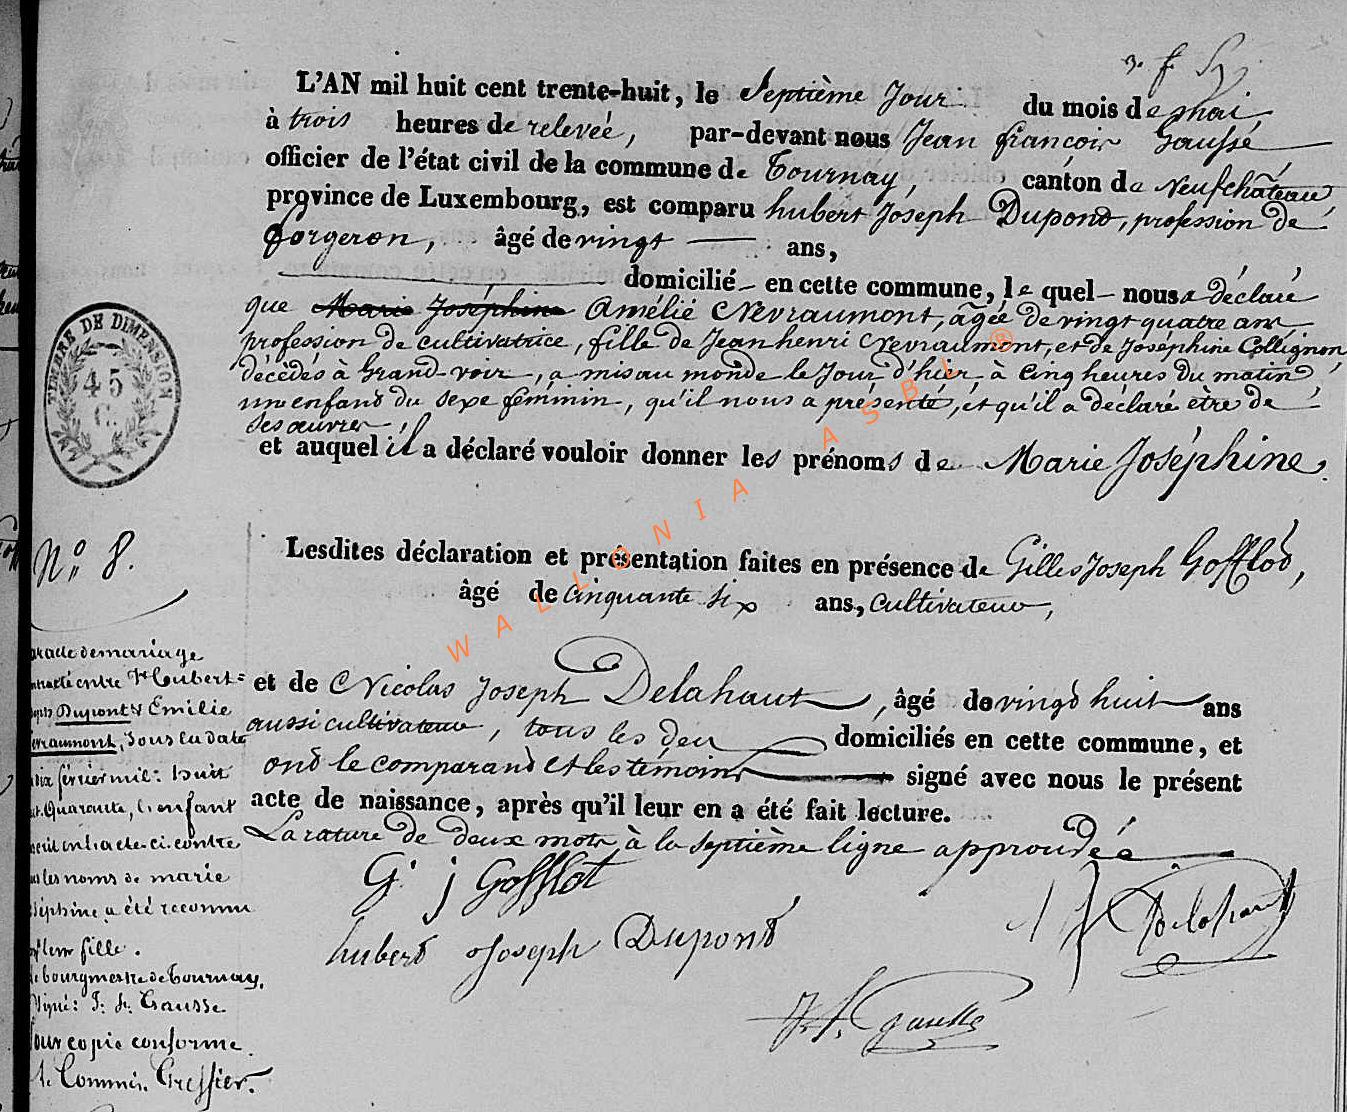 L'AN mil huit cent trente-huit, le Septième Jour du mois de mai
à trois heures de relevée, par-devant nous Jean françois Gaussé
officier de l'état civil de la commune de Tournay, canton de Neufchâteau,
province de Luxembourg, est comparu hubert Joseph Dupond, profession de
forgeron, âgé de vingt ans,
domicilié en cette commune, le quel nous a déclaré
que Marie Joséphine Amélié Nevraumont, âgée de vingt quatre ans,
profession de cultivatrice, fille de Jean henri Nevraumont, et de Joséphine Collignon,
décédés à Grand-voir, a mis au monde le Jour d'hier, à cinq heures du matin,
un enfant du sexe féminin, qu'il nous a présenté, et qu'il a déclaré être de
ses œuvres,
et auquel il a déclaré vouloir donner les prénoms de Marie Joséphine.
TIMBRE DE DIMENSION
45
C.
WALLONIA ASBL ®
N° 8.
Lesdites déclaration et présentation faites en présence de Gilles Joseph Gofflot,
âgé de cinquante six ans, cultivateur,
et de Nicolas Joseph Delahaut, âgé de vingt huit ans
aussi cultivateur, tous les deux domiciliés en cette commune, et
ont le comparant et les témoins signé avec nous le présent
acte de naissance, après qu'il leur en a été fait lecture.
La rature de deux mots à la septième ligne approuvée
G. j Gofflot
hubert Joseph Dupont
Delahaut
J. f. Gaussé
acte de mariage
entre Hubert
Dupont & Émilie
Nevraumont, sous la date
dix février mil huit
quarante, l'enfant
en l'acte ci-contre
les noms de marie
Joséphine a été reconnu
leur fille.
bourgmestre de Tournay,
Signé: J. f. Gausse
Pour copie conforme
Le Commis Greffier.